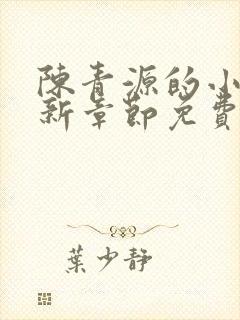 陳青源的小
新章節免費
葉少靜